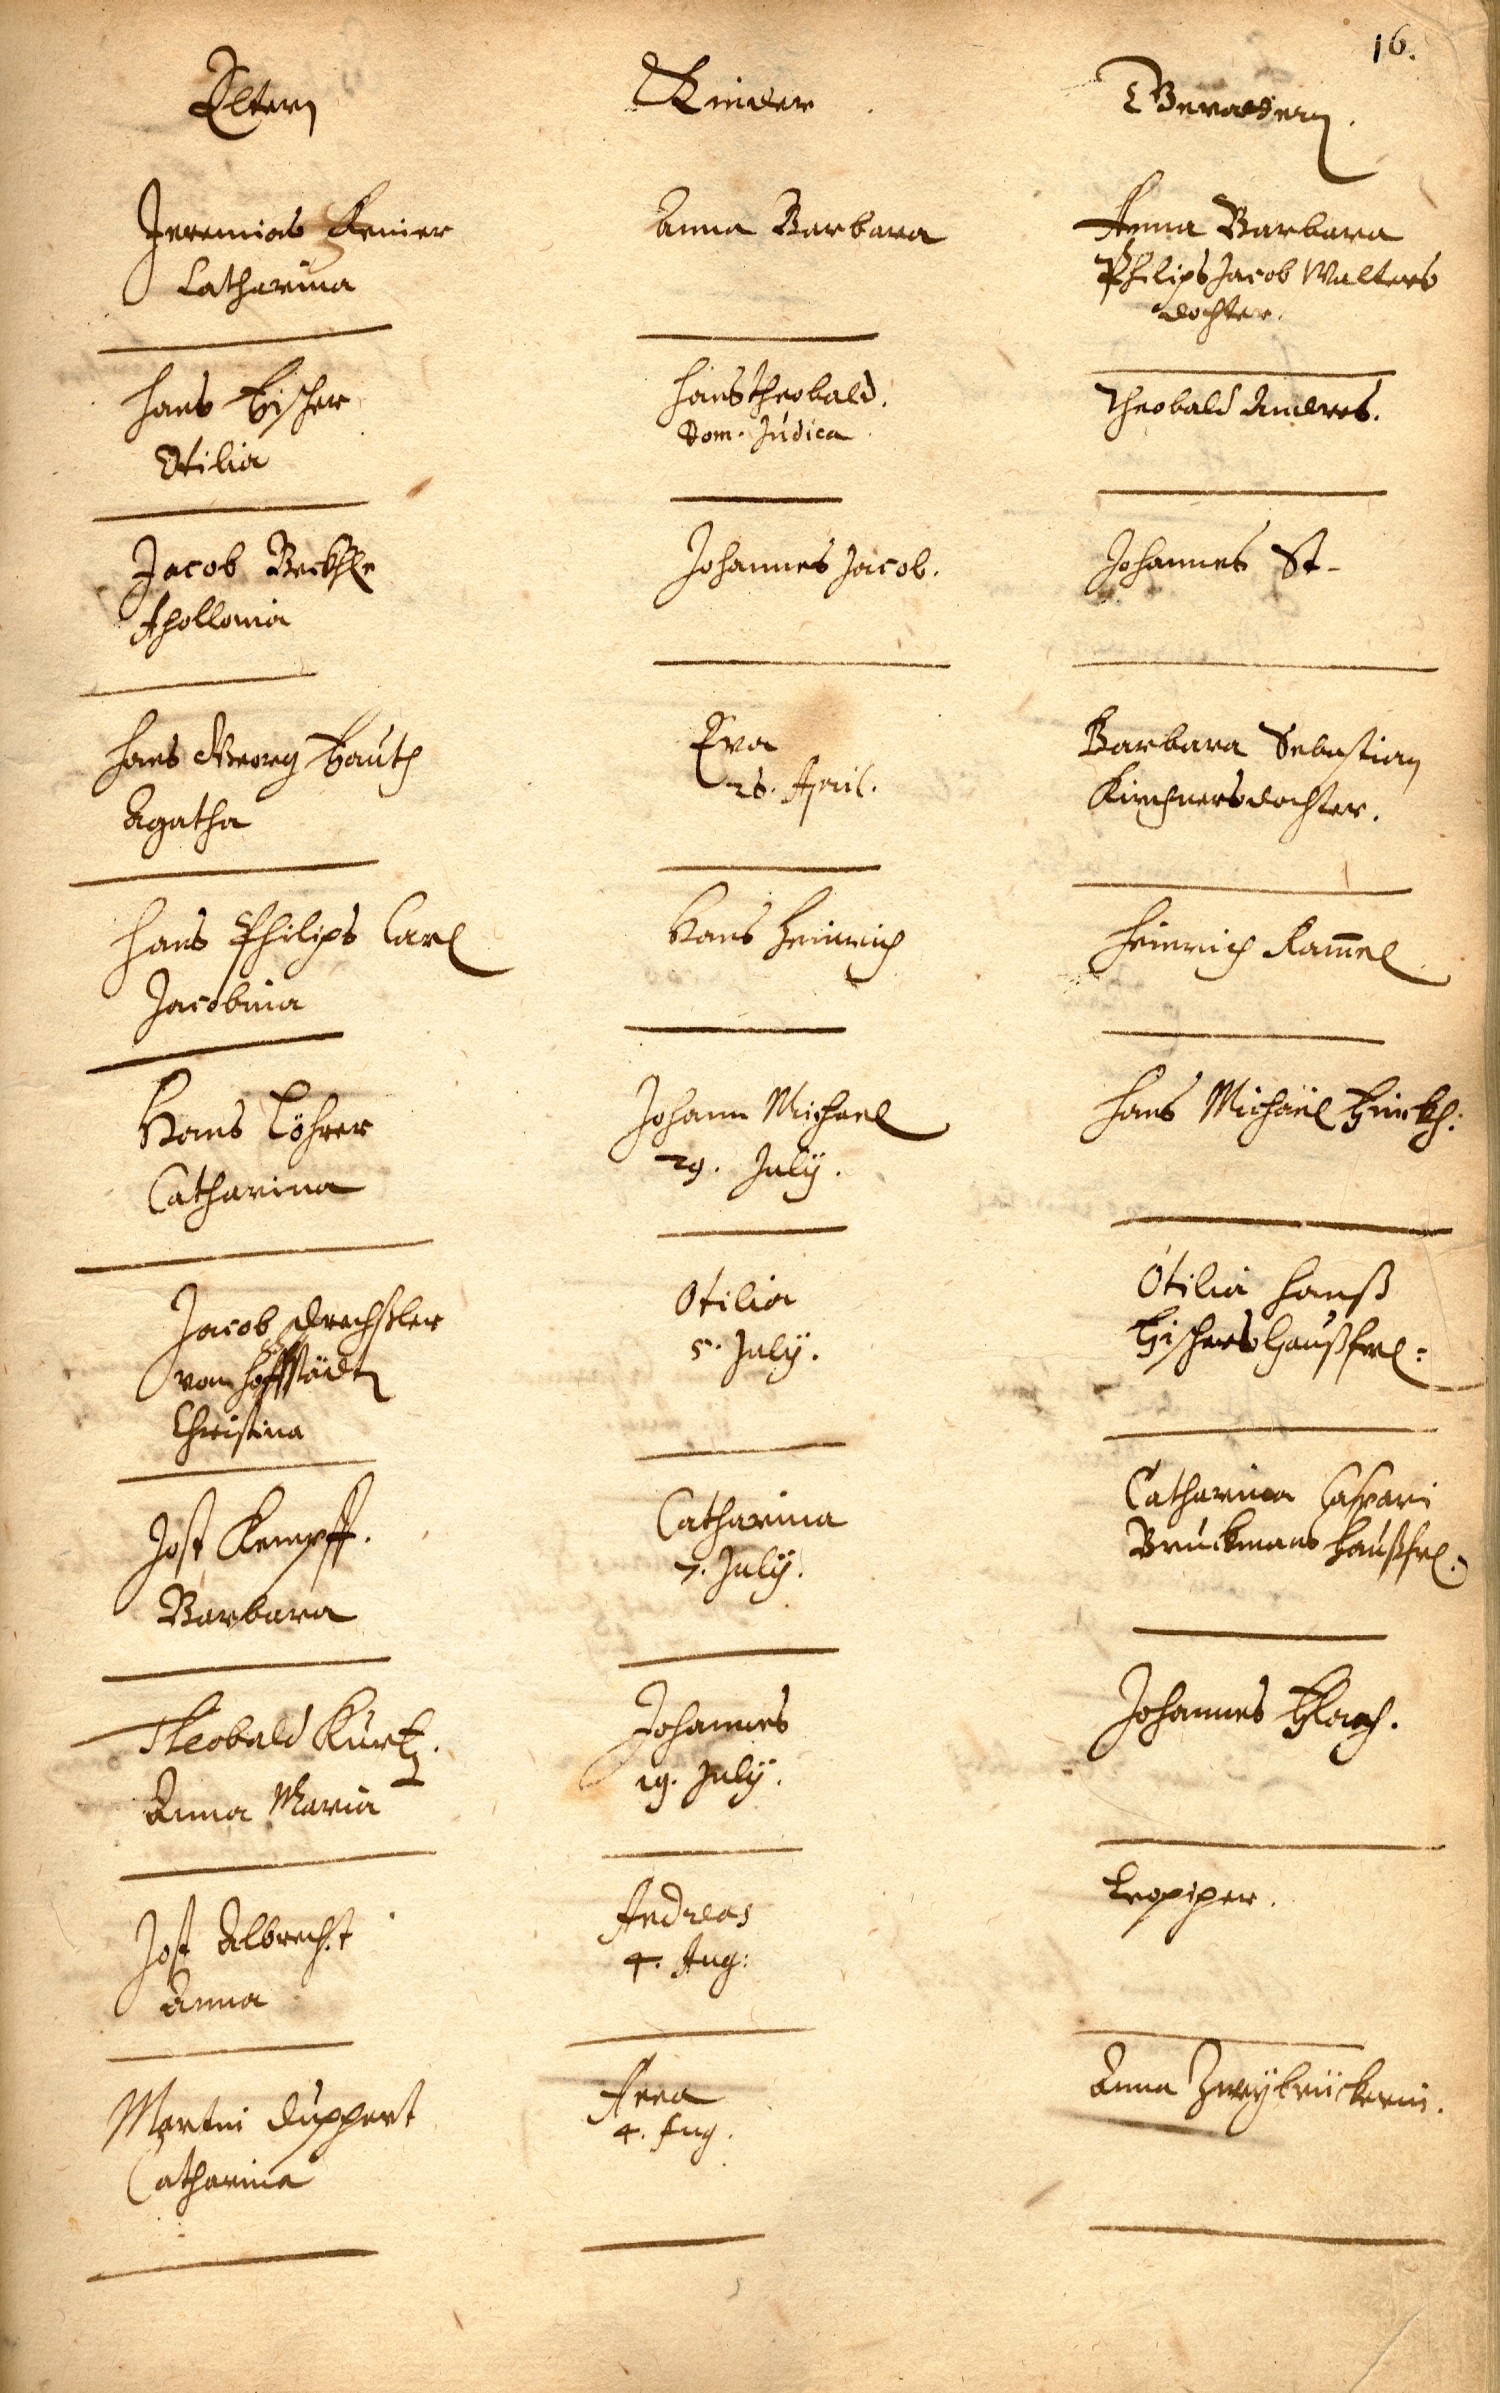 16.
Eltern Kinder Gevattern.
Jeremias Kenier
Catharina
Anna Barbara
Anna Barbara
Philips Jacob Walters
dochter.
Hans Fischer
Otilia
Hans Theobald.
Dom. Judica
Theobald Anderes.
Jacob
Apollonia
Johannes Jacob.
Johannes St-
Hans Georg Hauth
Agatha
Eva
26. April.
Barbara Sebastian
Kirchners dochter.
Hans Philips Carl
Jacobina
Hans Heinrich
Heinrich Kam̅el
Hans Löhrer
Catharina
Johann Michael
29. July.
Hans Michäel
Jacob Drechßler
von Hoffstädten
Christina
Otilia
5. July.
Otilia Hanß
Fischers Haußfr:
Jost Kempff.
Barbara
Catharina
7. July.
Catharina Caspari
Bruckmans Haußfr:
Theobald Kurtz.
Anna Maria
Johannes
19. July.
Johannes Flach.
Jost Albrecht
Anna
Andreas
4. Aug:
Martin Duppert
Catharina
Anna
4. Aug.
Anna Zweybrückerin.